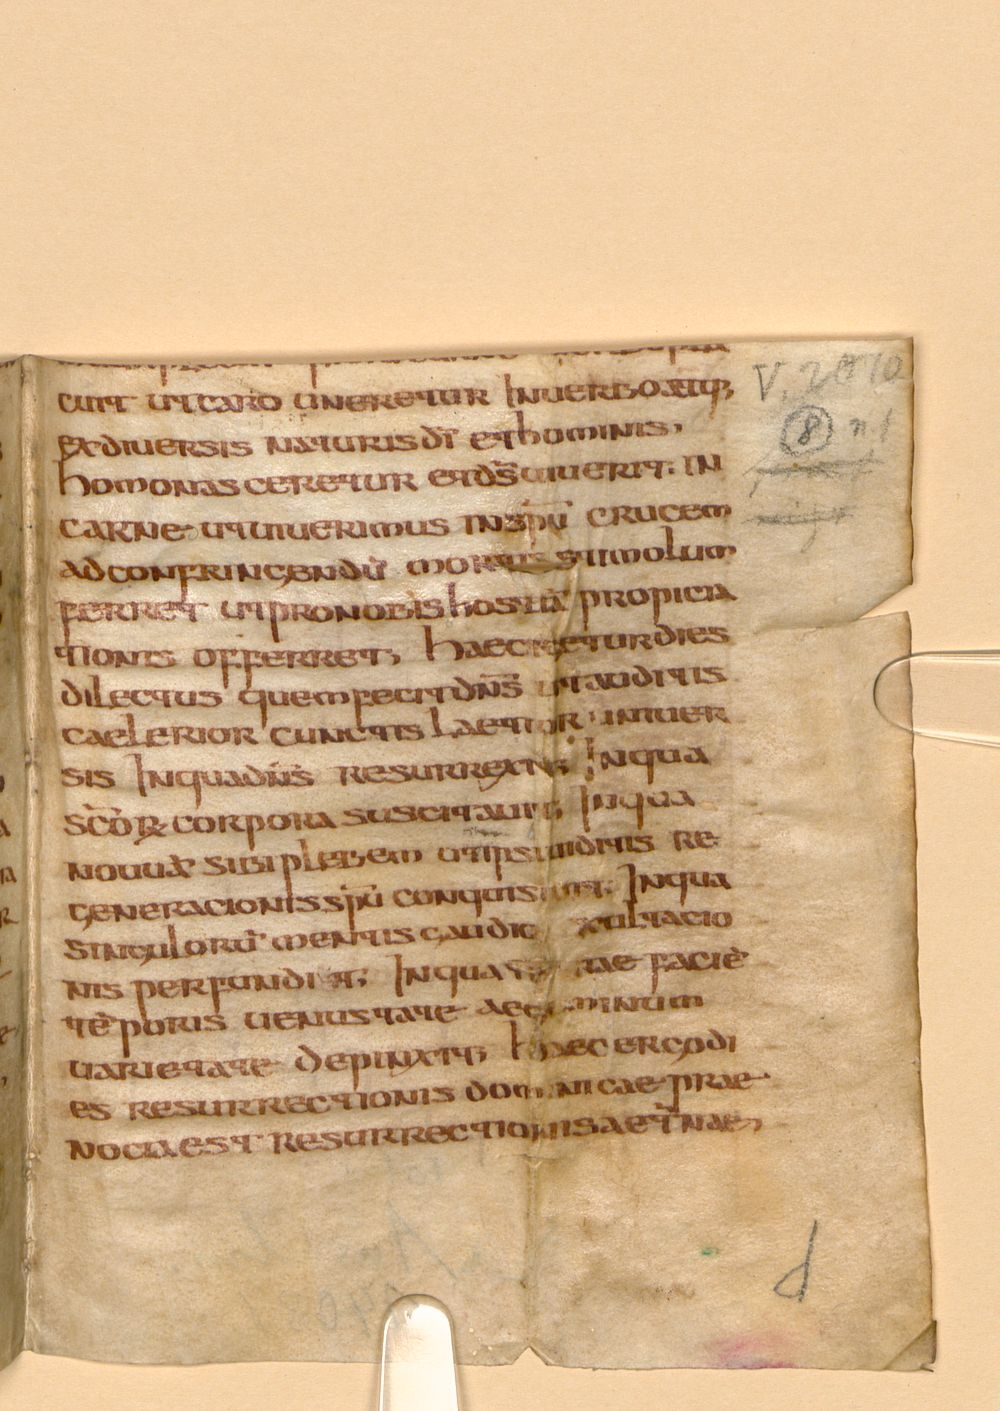 cuit ut caro uneretur In uerbo atq;
ex diuersis naturis dī et hominis,
homo nasceretur et ds̄ uiuerit; in
carne ut uiuerimus in spū crucem
ad confringendū mortis stimolum
ferret ut pro nobis hostiā propicia
tionis offerret; haec igetur dies
dilectus quem fecit dn̄s ut auditus
caelerior cunctis laetior uniuer
sis In qua dn̄s resurrexit; In qua
scōrꝝ corpora suscitauit; In qua
nouuā sibi plebem ut ipsi uiditis re
generacionis spū conquisiuit; In qua
singulorū mentis gaudio exultacio
nis perfundit; In qua faciē
tēporis uenustate
uarietate depinxit; haec ergo di
es resurrectionis dominicae prae
nocia est resurrectionis aet̄nae;
V. 2010
8 n. 1
d